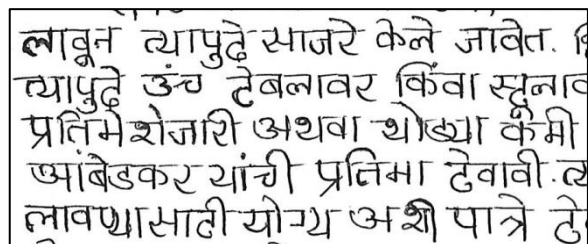 लावून त्यापुढे साजरे केले जावेत.
त्यापुढे उंच टेबलावर किंवा स्टूलाव
प्रतिमेशेजारी अथवा थोड्या कमी
आंबेडकर यांची प्रतिमा ठेवावी.
लावण्यासाठी योग्य अशी पात्रे ठे